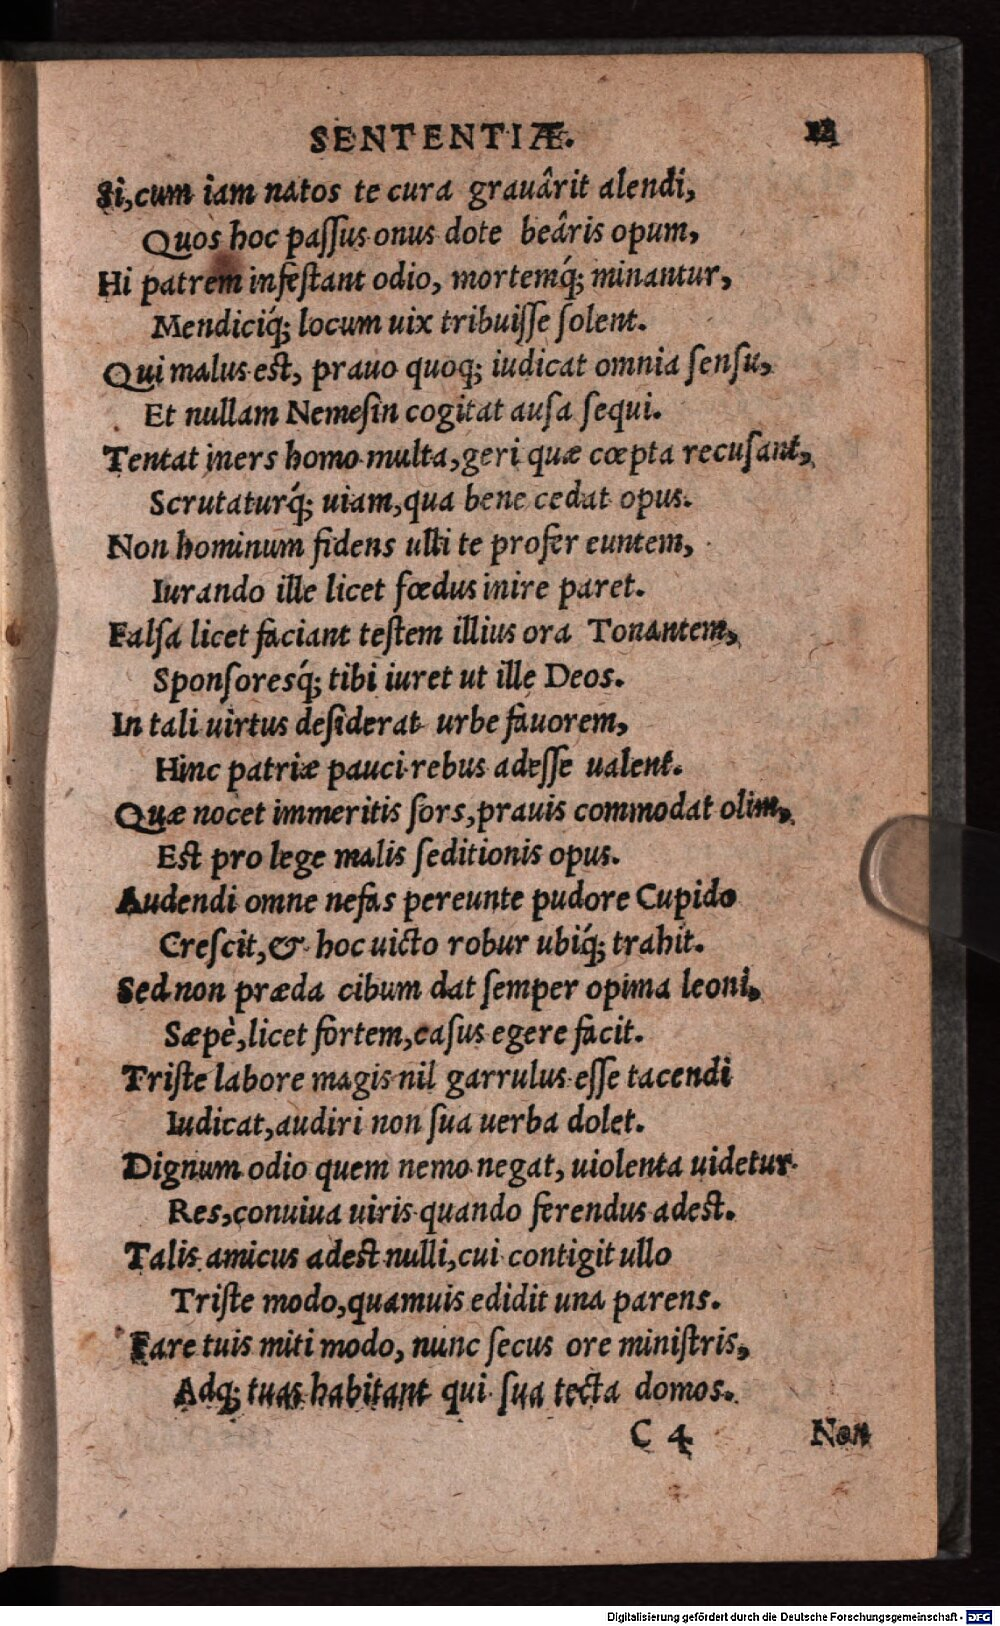 SENTENTIÆ.
Si, cum iam natos te cura grauârit alendi,
Quos hoc paſſus onus dote beâris opum,
Hi patrem infeſtant odio, mortemq́; minantur,
Mendiciq́; locum uix tribuiſſe ſolent.
Qui malus eſt, prauo quoq; iudicat omnia ſenſu,
Et nullam Nemeſin cogitat auſa ſequi.
Tentat iners homo multa, geri quæ cœpta recuſant,
Scrutaturq́; uiam, qua bene cedat opus.
Non hominum fidens ulli te profer euntem,
Iurando ille licet fœdus inire paret.
Falſa licet faciant teſtem illius ora Tonantem,
Sponſoresq́; tibi iuret ut ille Deos.
In tali uirtus deſiderat urbe fauorem,
Hinc patriæ pauci rebus adeſſe ualent.
Quæ nocet immeritis ſors, prauis commodat olim,
Eſt pro lege malis ſeditionis opus.
Audendi omne nefas pereunte pudore Cupido
Creſcit, & hoc uicto robur ubiq́; trahit.
Sed non præda cibum dat ſemper opima leoni,
Sæpè, licet fortem, caſus egere facit.
Triſte labore magis nil garrulus eſſe tacendi
Iudicat, audiri non ſua uerba dolet.
Dignum odio quem nemo negat, uiolenta uidetur
Res, conuiua uiris quando ferendus adeſt.
Talis amicus adeſt nulli, cui contigit ullo
Triſte modo, quamuis edidit una parens.
Fare tuis miti modo, nunc ſecus ore miniſtris,
Adq; tuas habitant qui ſua tecta domos.
C 4 Non
Digitalisierung gefördert durch die Deutsche Forschungsgemeinschaft - DFG